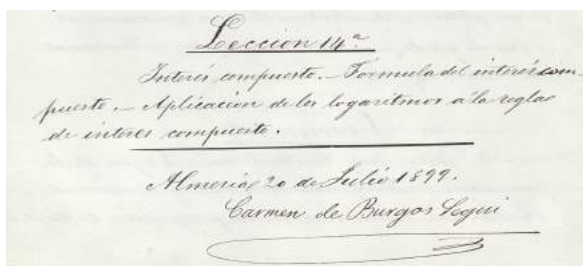 Lección 14ª
Interés compuesto. - Fórmula del interés com
puesto. - Aplicación de los logaritmos á la regla
de interés compuesto.
Almería 20 de Julio 1899.
Carmen de Burgos Seguí